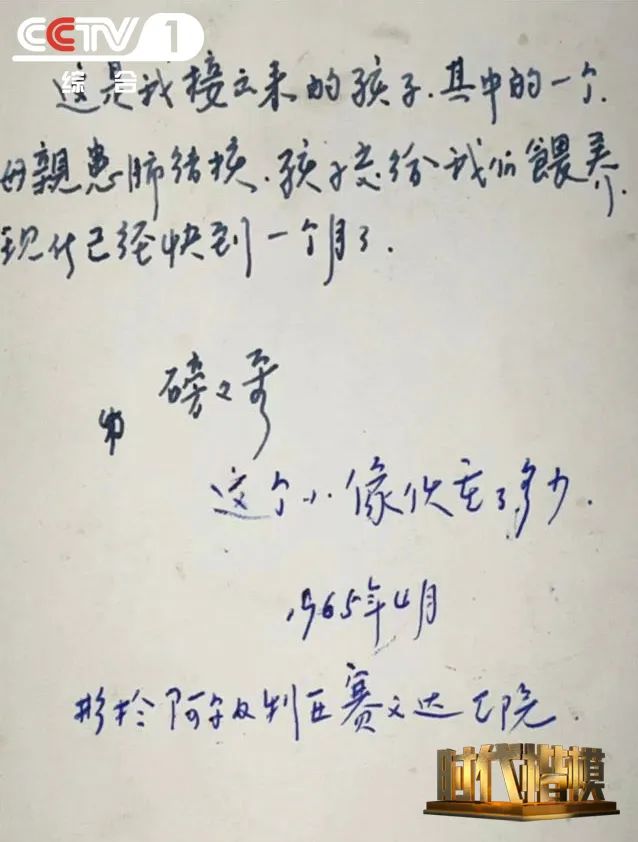 CCTV 1
综合
这是我接出来的孩子.其中的一个.
母親患肺结核.孩子交给我们餵养.
现在已经快到一个月了.
磅々看
这个小傢伙重了多少.
1965年4月
於阿尔及利亚赛义达医院.
时代楷模